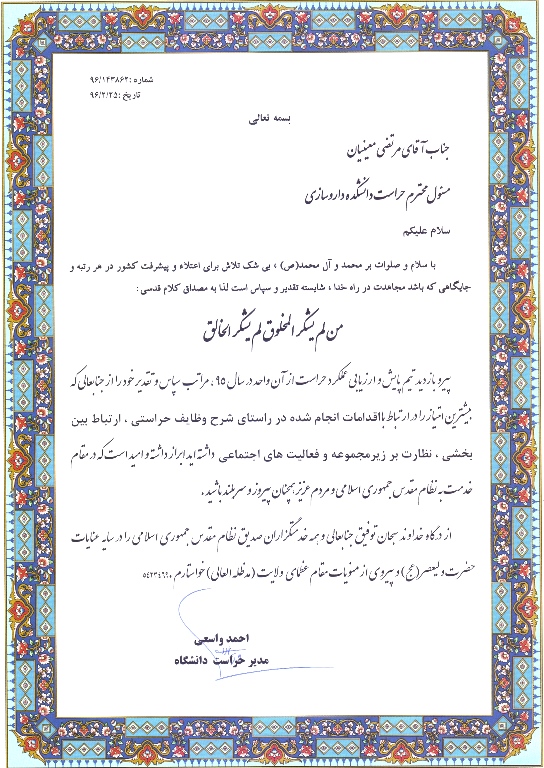 شماره :۹۶/۱۴۳۸۶۲
تاریخ :۹۶/۲/۲۵
بسمه تعالی
جناب آقای مرتضی معینیان
مسئول محترم حراست دانشکده داروسازی
سلام علیکم
با سلام و صلوات بر محمد و آل محمد(ص) ، بی شک تلاش برای اعتلاء و پیشرفت کشور در هر رتبه و
جایگاهی که باشد مجاهدت در راه خدا ، شایسته تقدیر و سپاس است لذا به مصداق کلام قدسی :
من لم یشکر المخلوق لم یشکر الخالق
پیرو بازدید تیم پایش و ارزیابی عملکرد حراست از آن واحد در سال ۹۵ ، مراتب سپاس و تقدیر خود را از جنابعالی که
بیشترین امتیاز را در ارتباط بااقدامات انجام شده در راستای شرح وظایف حراستی ، ارتباط بین
بخشی ، نظارت بر زیرمجموعه و فعالیت های اجتماعی داشته اید ابراز داشته و امید است که در مقام
خدمت به نظام مقدس جمهوری اسلامی و مردم عزیز همچنان پیروز و سربلند باشید.
از درگاه خداوند سبحان توفیق جنابعالی و همه خدمتگزاران صدیق نظام مقدس جمهوری اسلامی را در سایه عنایات
حضرت ولیعصر(عج) و پیروی از منویات مقام عظمای ولایت (مدظله العالی) خواستارم .۵۴۲۳۴۶۹
احمد واسعی
مدیر حراست دانشگاه